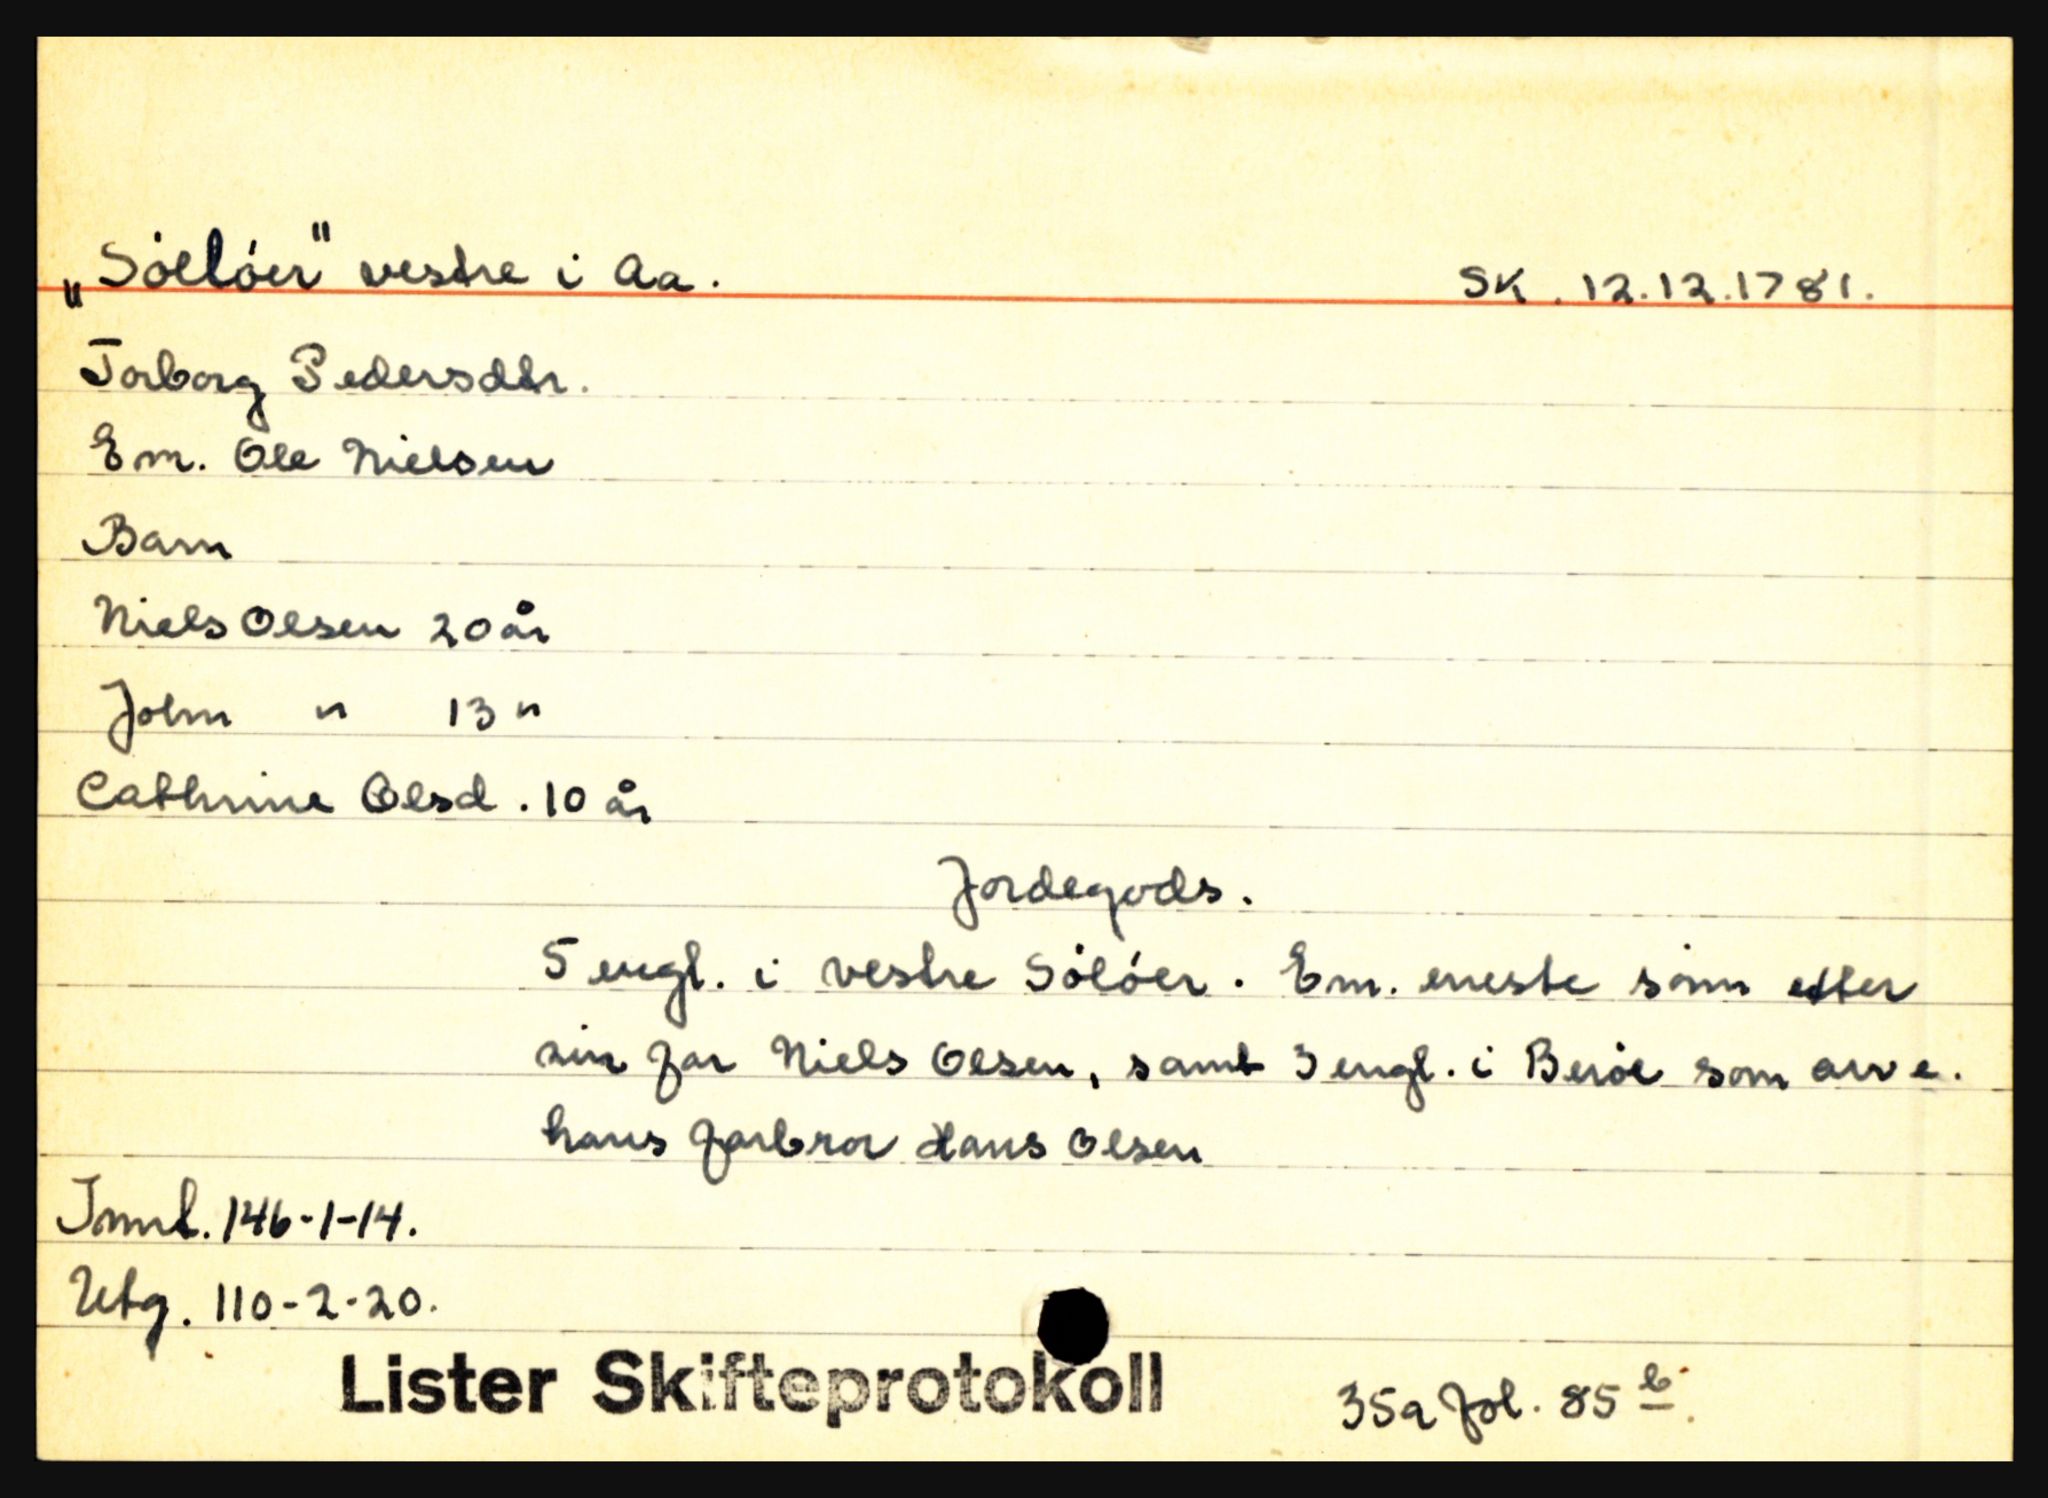 „Söelöer" vestre i Aa. SK. 12.12.1781.
Torborg Pedersdtr.
Em. Ole Nielsen
Barn
Niels Olsen 20 år
John " 13 "
Cathrine Olsd. 10 år
Jordegods.
5 engl. i vestre Sölöer. Em. eneste sönn etter
sin far Niels Olsen, samt 3 engl. i Beröe som arv e.
hans farbror Hans Olsen
Innt. 146-1-14.
Utg. 110-2-20.
Lister Skifteprotokoll 35a fol. 85 b.